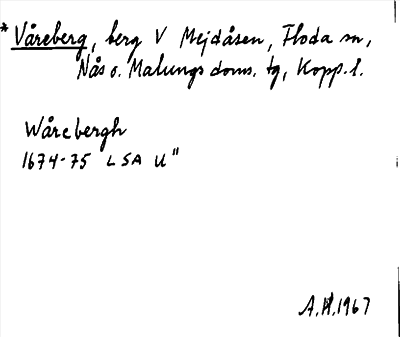 * Våreberg, berg V Mejdåsen, Floda sn,
Nås o. Malungs doms. tg, Kopp. l.
Wårebergh
1674-75 LSA U"
A.H.1967